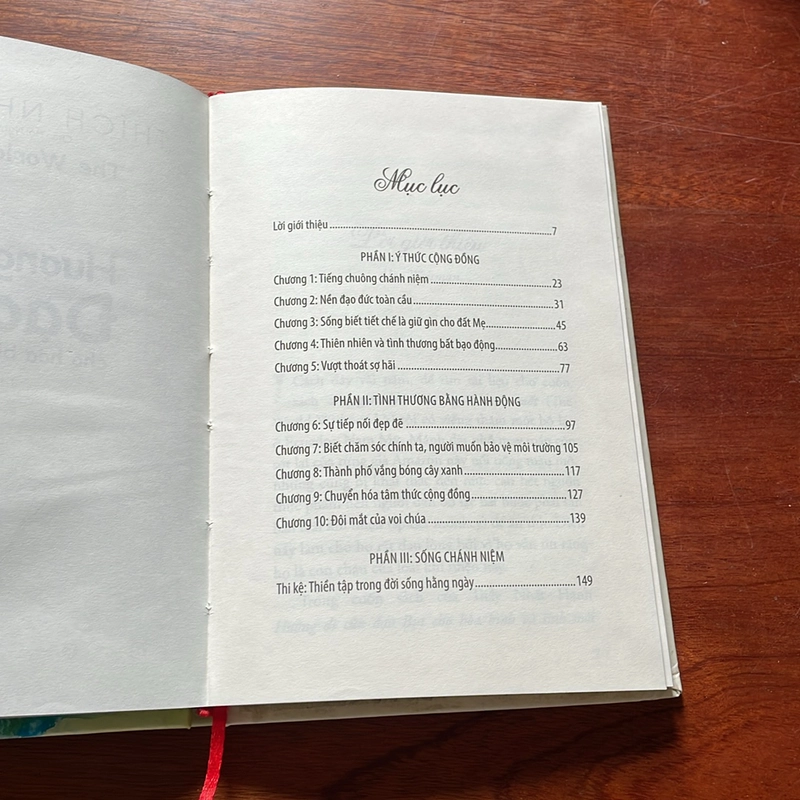 Mục lục
Lời giới thiệu ........ 7
PHẦN I: Ý THỨC CỘNG ĐỒNG
Chương 1: Tiếng chuông chánh niệm ........ 23
Chương 2: Nền đạo đức toàn cầu ........ 31
Chương 3: Sống biết tiết chế là giữ gìn cho đất Mẹ ........ 45
Chương 4: Thiên nhiên và tình thương bất bạo động ........ 63
Chương 5: Vượt thoát sợ hãi ........ 77
PHẦN II: TÌNH THƯƠNG BẰNG HÀNH ĐỘNG
Chương 6: Sự tiếp nối đẹp đẽ ........ 97
Chương 7: Biết chăm sóc chính ta, người muốn bảo vệ môi trường 105
Chương 8: Thành phố vắng bóng cây xanh ........ 117
Chương 9: Chuyển hóa tâm thức cộng đồng ........ 127
Chương 10: Đôi mắt của voi chúa ........ 139
PHẦN III: SỐNG CHÁNH NIỆM
Thi kệ: Thiền tập trong đời sống hằng ngày ........ 149